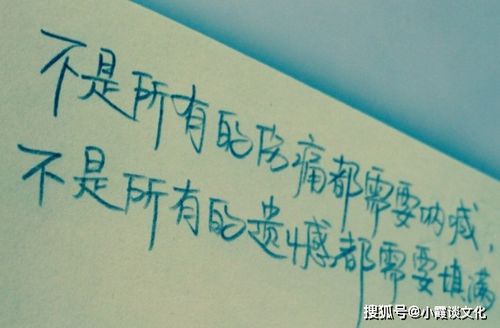 不是所有的伤痛都需要呐喊，
不是所有的遗憾都需要填满
搜狐号@小霞谈文化